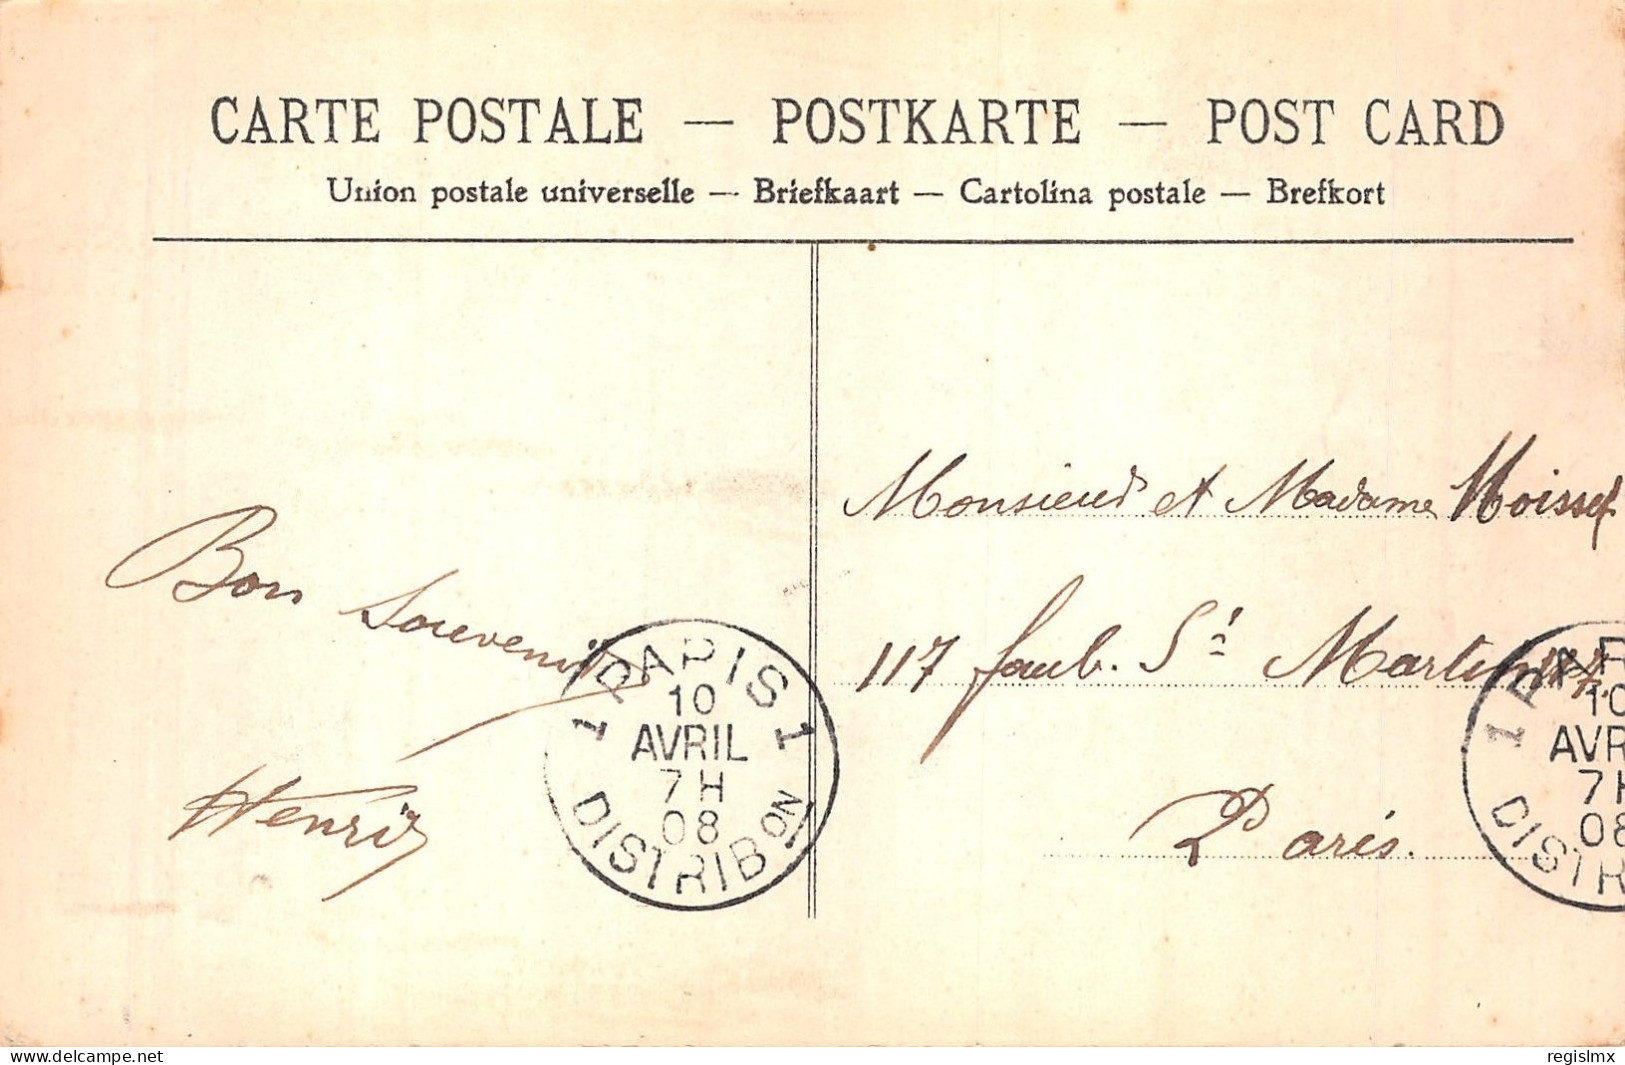 CARTE POSTALE — POSTKARTE — POST CARD
Union postale universelle — Briefkaart — Cartolina postale — Brefkort
Bon Souvenir
Henri
Monsieur et Madame
117 faub. St Martin
Paris.
1 PARIS 1
10
AVRIL
7H
08
DISTRIBON
1 PAR
10
AVR
7H
08
DISTR
www.delcampe.net
regislmx